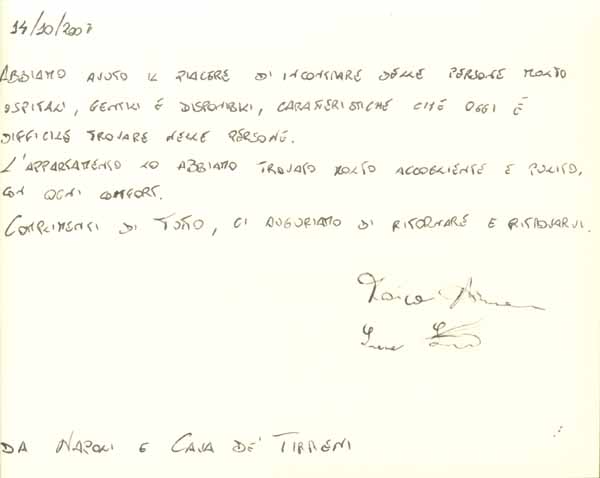 14/10/2007
ABBIAMO AVUTO IL PIACERE DI INCONTRARE DELLE PERSONE MOLTO
OSPITALI, GENTILI E DISPONIBILI, CARATTERISTICHE CHE OGGI È
DIFFICILE TROVARE NELLE PERSONE.
L'APPARTAMENTO LO ABBIAMO TROVATO MOLTO ACCOGLIENTE E PULITO,
CON OGNI COMFORT.
COMPLIMENTI DI TUTTO, CI AUGURIAMO DI RITORNARE E RITROVARVI.
Irene
DA NAPOLI E CAVA DE' TIRRENI